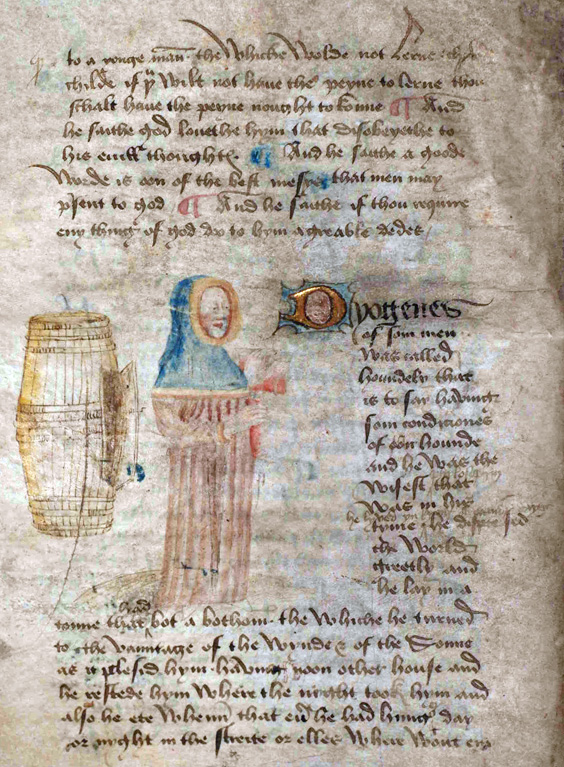 to a yonge man the whiche wolde not lerne
childe if þu wilt not have the peyne to lerne thou
schalt have the peyne nought to konne ¶ And
he saithe god louethe hym that disobeyethe to
his euill thoughts ¶ And he saithe a goode
worde is oon of the best that men may
psent to god ¶ And he saithe if thou require
eny thing of god do to hym agreable dedes
Dyogenes
of som men
was called
houndely that
is to say having
som condiciones
of an hounde
and he was the
wisest that
was in his
tyme he
the world
greetly and
he lay in a
tonne that had bot a bothom the whiche he turned
to the vauntage of the wynde & of the Sonne
as it plesid hym having noon other house and
he restede hym where the nyght took hym and
also he ete whenn that eu he had hung day
or nyght in the streite or elles where wtout eny